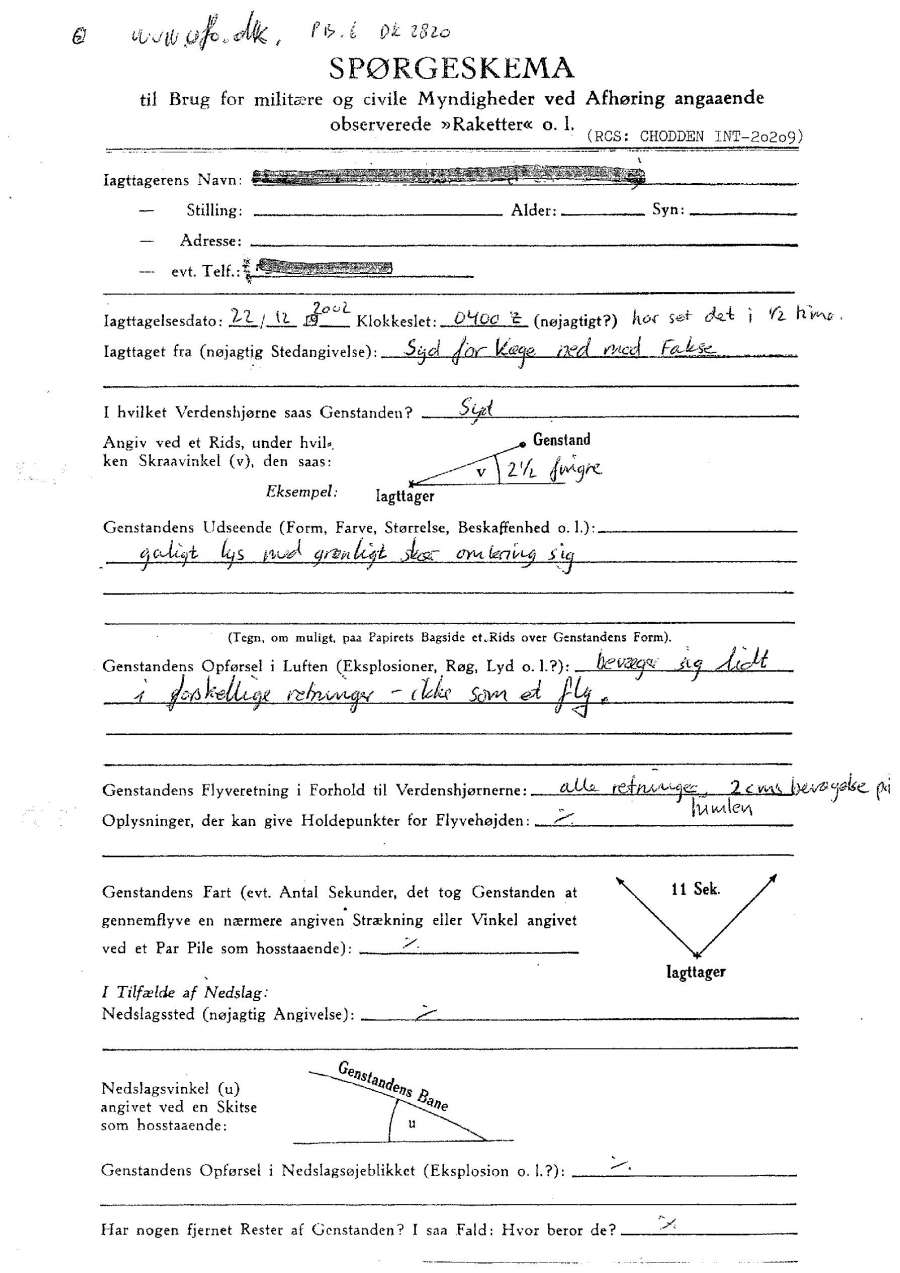 www.ufo.dk, P.B. i DK 2820
SPØRGESKEMA
til Brug for militære og civile Myndigheder ved Afhøring angaaende
observerede »Raketter« o. l.
(RCS: CHODDEN INT-20209)
Iagttagerens Navn:
— Stilling: Alder: Syn:
— Adresse:
— evt. Telf.:
Iagttagelsesdato: 22/12 19 2002 Klokkeslet: 0400 Z (nøjagtigt?) har set det i 1/2 time.
Iagttaget fra (nøjagtig Stedangivelse): Syd for Køge ned mod Fakse
I hvilket Verdenshjørne saas Genstanden? Syd
Angiv ved et Rids, under hvil-
ken Skraavinkel (v), den saas:
Eksempel:
Genstand
v 2 1/2 fingre
Iagttager
Genstandens Udseende (Form, Farve, Størrelse, Beskaffenhed o. l.):
lys med grønligt skær omkring sig
(Tegn, om muligt, paa Papirets Bagside et Rids over Genstandens Form).
Genstandens Opførsel i Luften (Eksplosioner, Røg, Lyd o. l.?): bevæger sig lidt
i forskellige retninger - ikke som et fly.
Genstandens Flyveretning i Forhold til Verdenshjørnerne: alle retninger, 2 cms bevægelse på
himlen
Oplysninger, der kan give Holdepunkter for Flyvehøjden: ÷
Genstandens Fart (evt. Antal Sekunder, det tog Genstanden at
gennemflyve en nærmere angiven Strækning eller Vinkel angivet
ved et Par Pile som hosstaaende): ÷
11 Sek.
Iagttager
I Tilfælde af Nedslag:
Nedslagssted (nøjagtig Angivelse): ÷
Nedslagsvinkel (u)
angivet ved en Skitse
som hosstaaende:
Genstandens Bane
u
Genstandens Opførsel i Nedslagsøjeblikket (Eksplosion o. l.?): ÷
Har nogen fjernet Rester af Genstanden? I saa Fald: Hvor beror de? ÷